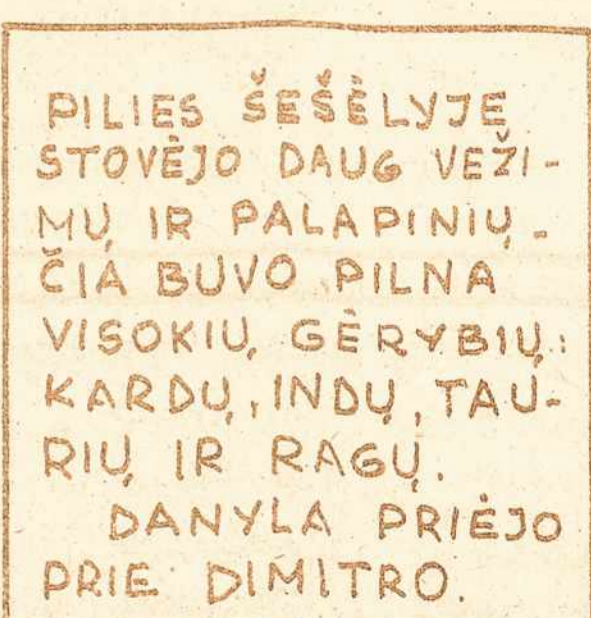 PILIES ŠEŠĖLYJE
STOVĖJO DAUG VEŽI-
MŲ IR PALAPINIŲ.
ČIA BUVO PILNA
VISOKIŲ GĖRYBIŲ:
KARDŲ, INDŲ, TAU-
RIŲ IR RAGŲ.
DANYLA PRIĖJO
PRIE DIMITRO.